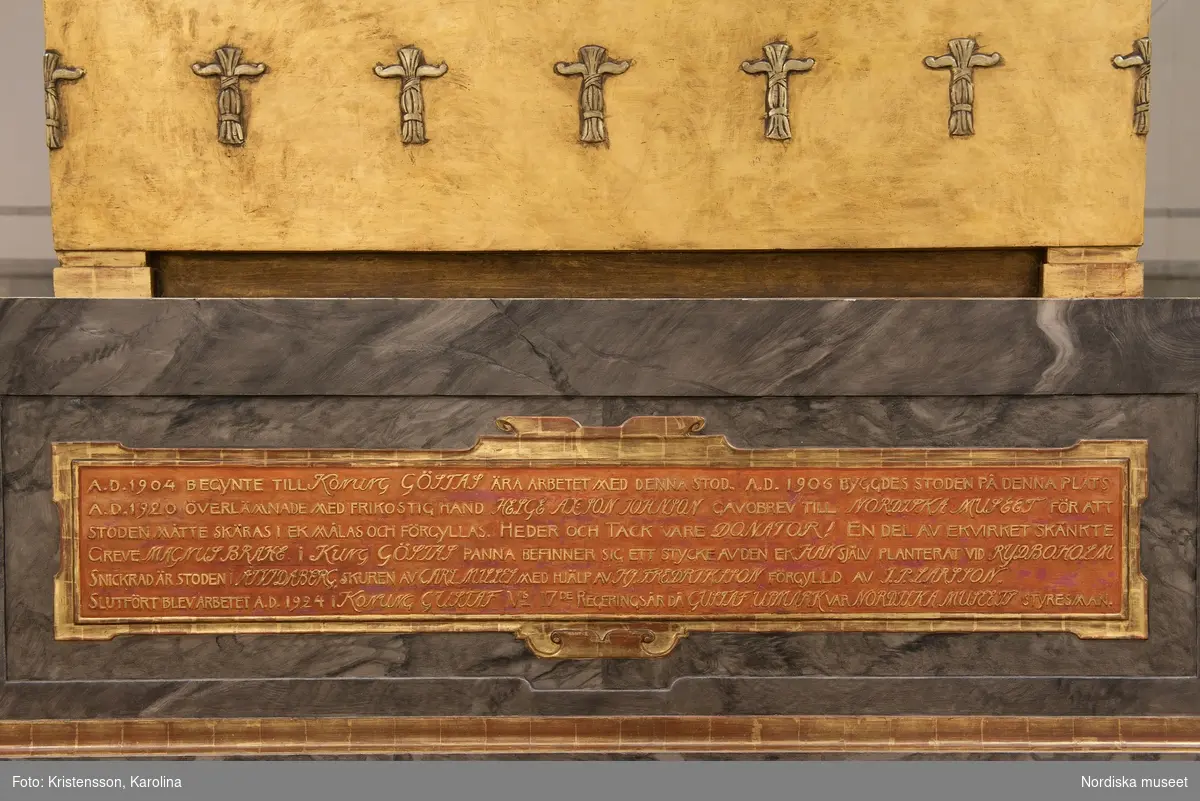 A.D. 1904 BEGYNTE TILL KONUNG GÖSTAS ÄRA ARBETET MED DENNA STOD. A.D. 1906 BYGGDES STODEN PÅ DENNA PLATS
A.D. 1920 ÖVERLÄMNADE MED FRIKOSTIG HAND HELGE AXSON JOHNSON GÅVOBREV TILL NORDISKA MUSEET FÖR ATT
STODEN MÅTTE SKÄRAS I EK MÅLAS OCH FÖRGYLLAS. HEDER OCH TACK VARE DONATOR! EN DEL AV EKVIRKET SKÄNKTE
GREVE MAGNUS BRAHE I KUNG GÖSTAS PANNA BEFINNER SIG ETT STYCKE AV DEN EK HAN SJÄLV PLANTERAT VID RYDBOHOLM
SNICKRAD ÄR STODEN I ÅTVIDABERG SKUREN AV CARL MILLES MED HJÄLP AV FREDRIKSSON FÖRGYLLD AV LARSSON.
SLUTFÖRT BLEV ARBETET A.D. 1924 I KONUNG GUSTAF VS 17DE REGERINGSÅR DÅ GUSTAF UPMARK VAR NORDISKA MUSEETS STYRESMAN.
Foto: Kristensson, Karolina
Nordiska museet